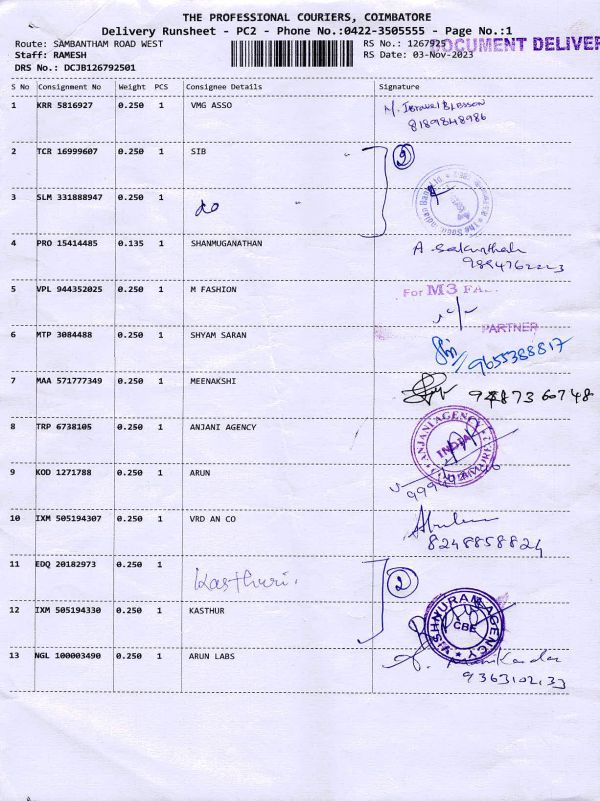 THE PROFESSIONAL COURIERS, COIMBATORE
Delivery Runsheet - PC2 - Phone No.:0422-3505555 - Page No.:1
Route: SAMBANTHAM ROAD WEST RS No.: 1267925 DOCUMENT DELIVER
Staff: RAMESH RS Date: 03-Nov-2023
DRS No.: DCJB126792501
S No Consignment No Weight PCS Consignee Details Signature
1 KRR 5816927 0.250 1 VMG ASSO
8189848986
2 TCR 16999607 0.250 1 SIB 2
3 SLM 331888947 0.250 1 do
4 PRO 15414485 0.135 1 SHANMUGANATHAN
5 VPL 944352025 0.250 1 M FASHION For M3 FA
PARTNER
6 MTP 3084488 0.250 1 SHYAM SARAN
9655388817
7 MAA 571777349 0.250 1 MEENAKSHI
8 TRP 6738105 0.250 1 ANJANI AGENCY ANJANI AGENCY INDIA
9 KOD 1271788 0.250 1 ARUN
10 IXM 505194307 0.250 1 VRD AN CO
8248858824
11 EDQ 20182973 0.250 1 Kasthuri. 2
12 IXM 505194330 0.250 1 KASTHUR VISHNURAM AGENCY CBE
13 NGL 100003490 0.250 1 ARUN LABS
9363102133